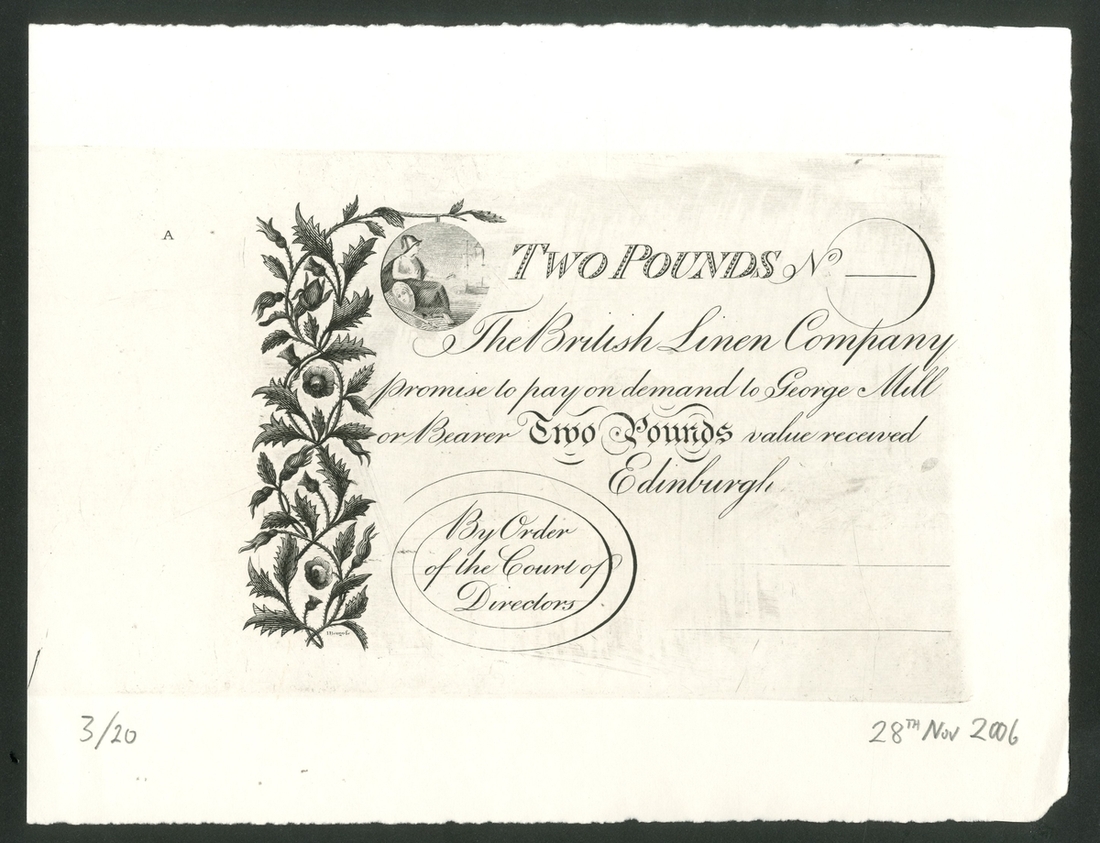 A
TWO POUNDS No
The British Linen Company
promise to pay on demand to George Mill
or Bearer Two Pounds value received
Edinburgh
By Order
of the Court of
Directors
3/20
28TH Nov 2006